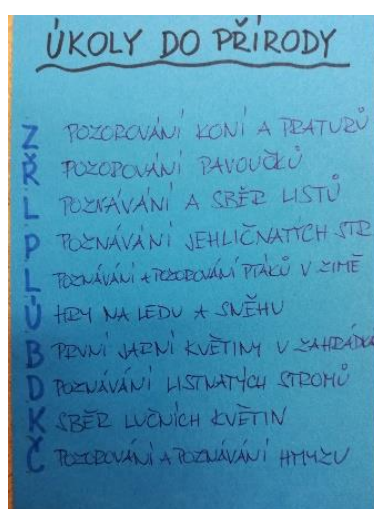 ÚKOLY DO PŘÍRODY
Z POZOROVÁNÍ KONÍ A PRATURŮ
Ř POZOROVÁNÍ PAVOUČKŮ
L POZNÁVÁNÍ A SBĚR LISTŮ
P POZNÁVÁNÍ JEHLIČNATÝCH STR
L POZNÁVÁNÍ A POZOROVÁNÍ PTÁKŮ V ZIMĚ
Ú HRY NA LEDU A SNĚHU
B PRVNÍ JARNÍ KVĚTINY V ZAHRÁDKÁ
D POZNÁVÁNÍ LISTNATÝCH STROMŮ
K SBĚR LUČNÍCH KVĚTIN
Č POZOROVÁNÍ A POZNÁVÁNÍ HMYZU